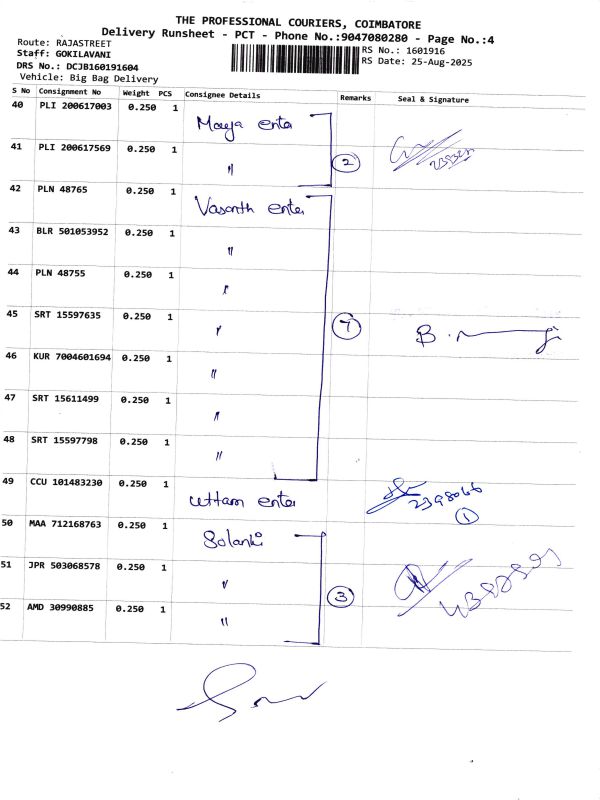 THE PROFESSIONAL COURIERS, COIMBATORE
Delivery Runsheet - PCT - Phone No.:9047080280 - Page No.:4
Route: RAJASTREET
Staff: GOKILAVANI
DRS No.: DCJB160191604
Vehicle: Big Bag Delivery
RS No.: 1601916
RS Date: 25-Aug-2025
S No Consignment No Weight PCS Consignee Details Remarks Seal & Signature
40 PLI 200617003 0.250 1 Maya enter
41 PLI 200617569 0.250 1 〃 2
42 PLN 48765 0.250 1 Vasanth enter
43 BLR 501053952 0.250 1 〃
44 PLN 48755 0.250 1 〃
45 SRT 15597635 0.250 1 〃 7
46 KUR 7004601694 0.250 1 〃
47 SRT 15611499 0.250 1 〃
48 SRT 15597798 0.250 1 〃
49 CCU 101483230 0.250 1 Uttam enter 2398066 1
50 MAA 712168763 0.250 1 Solanki
51 JPR 503068578 0.250 1 〃 3
52 AMD 30990885 0.250 1 〃